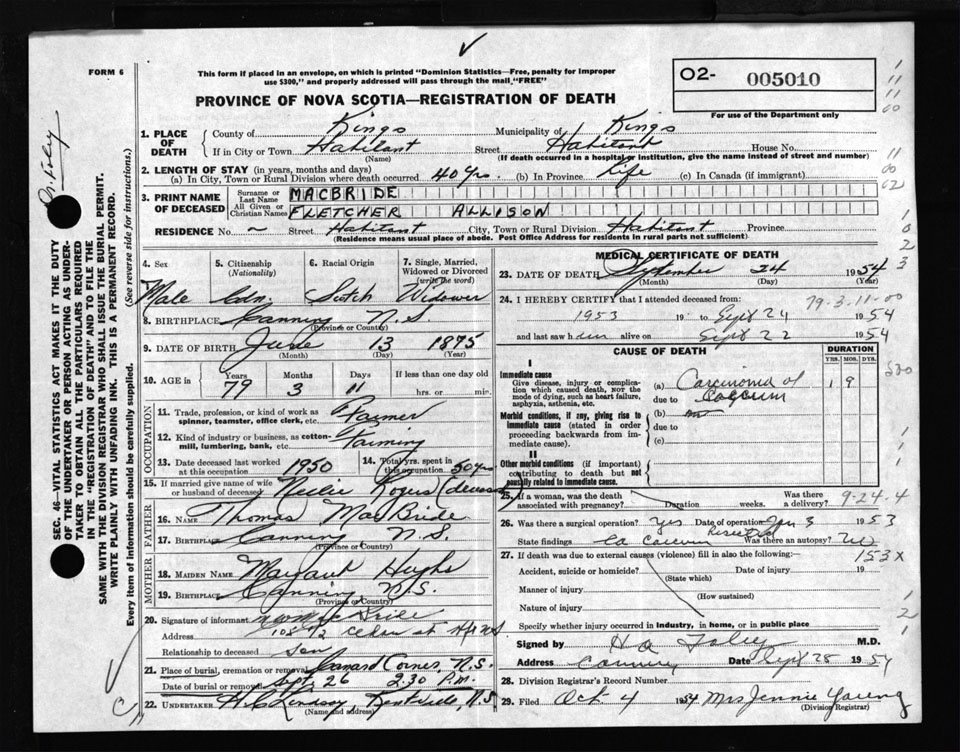 FORM 6
This form if placed in an envelope, on which is printed "Dominion Statistics—Free, penalty for improper
use $300," and properly addressed will pass through the mail "FREE"
O2- 005010
For use of the Department only
PROVINCE OF NOVA SCOTIA—REGISTRATION OF DEATH
1. PLACE OF DEATH
County of Kings Municipality of Kings
If in City or Town Habitant Street Habitant House No.
(Name) (If death occurred in a hospital or institution, give the name instead of street and number)
2. LENGTH OF STAY (in years, months and days)
(a) In City, Town or Rural Division where death occurred 40 yrs. (b) In Province life (c) In Canada (if immigrant)
3. PRINT NAME OF DECEASED
Surname or Last Name MACBRIDE
All Given or Christian Names FLETCHER ALLISON
RESIDENCE No. ~ Street Habitant City, Town or Rural Division Habitant Province
(Residence means usual place of abode. Post Office Address for residents in rural parts not sufficient)
4. Sex 5. Citizenship (Nationality) 6. Racial Origin 7. Single, Married, Widowed or Divorced (write the word)
Male Cdn. Scotch Widower
8. BIRTHPLACE Canning N.S.
(Province or Country)
9. DATE OF BIRTH June 13 1875
(Month) (Day) (Year)
10. AGE in Years Months Days If less than one day old
79 3 11 hrs. or min.
OCCUPATION
11. Trade, profession, or kind of work as spinner, teamster, office clerk, etc. Farmer
12. Kind of industry or business, as cotton-mill, lumbering, bank, etc. Farming
13. Date deceased last worked at this occupation 1950 14. Total yrs. spent in this occupation 50 yrs
15. If married give name of wife or husband of deceased Nellie Rogers (deceased)
FATHER
16. Name Thomas MacBride
17. Birthplace Canning N.S.
(Province or Country)
MOTHER
18. MAIDEN NAME Margaret Hughs
19. BIRTHPLACE Canning N.S.
(Province or Country)
20. Signature of informant
Address 108 1/2 St Hfx NS
Relationship to deceased Son
21. Place of burial, cremation or removal Canard Corner, N.S.
Date of burial or removal Sept. 26 2.30 P.M.
22. UNDERTAKER Lindsay, Kentville, N.S
(Name and address)
MEDICAL CERTIFICATE OF DEATH
23. DATE OF DEATH September 24 1954
(Month) (Day) (Year)
24. I HEREBY CERTIFY that I attended deceased from: 79-3-11-00
1953 19 to Sept 24 1954
and last saw him alive on Sept 22 1954
CAUSE OF DEATH
DURATION
YRS. MOS. DYS.
I
Immediate cause
Give disease, injury or complication which caused death, NOT the mode of dying, such as heart failure, asphyxia, asthenia, etc.
(a) Carcinoma of 1 9
due to Caecum
Morbid conditions, if any, giving rise to immediate cause (stated in order proceeding backwards from immediate cause).
(b)
due to
(c)
II
Other morbid conditions (if important) contributing to death but not causally related to immediate cause.
25. If a woman, was the death associated with pregnancy? Was there delivery 9-24-4
26. Was there a surgical operation? Yes Date of operation Jan 3 1953
State findings Ca Caecum Was there an autopsy? No
27. If death was due to external causes (violence) fill in also the following:— 153x
Accident, suicide or homicide? Date of injury 19
(State which)
Manner of injury
(How sustained)
Nature of injury
Specify whether injury occurred in industry, in home, or in public place
Signed by H A Foley M.D.
Address Canning Date Sept 28 1954
28. Division Registrar's Record Number
29. Filed Oct. 4 1954 Mrs Jennie Young
(Division Registrar)
SEC. 46—VITAL STATISTICS ACT MAKES IT THE DUTY
OF THE UNDERTAKER OR PERSON ACTING AS UNDER-
TAKER TO OBTAIN ALL THE PARTICULARS REQUIRED
IN THE "REGISTRATION OF DEATH" AND TO FILE THE
SAME WITH THE DIVISION REGISTRAR WHO SHALL ISSUE THE BURIAL PERMIT.
WRITE PLAINLY WITH UNFADING INK. THIS IS A PERMANENT RECORD.
Every item of information should be carefully supplied.
(See reverse side for instructions.)